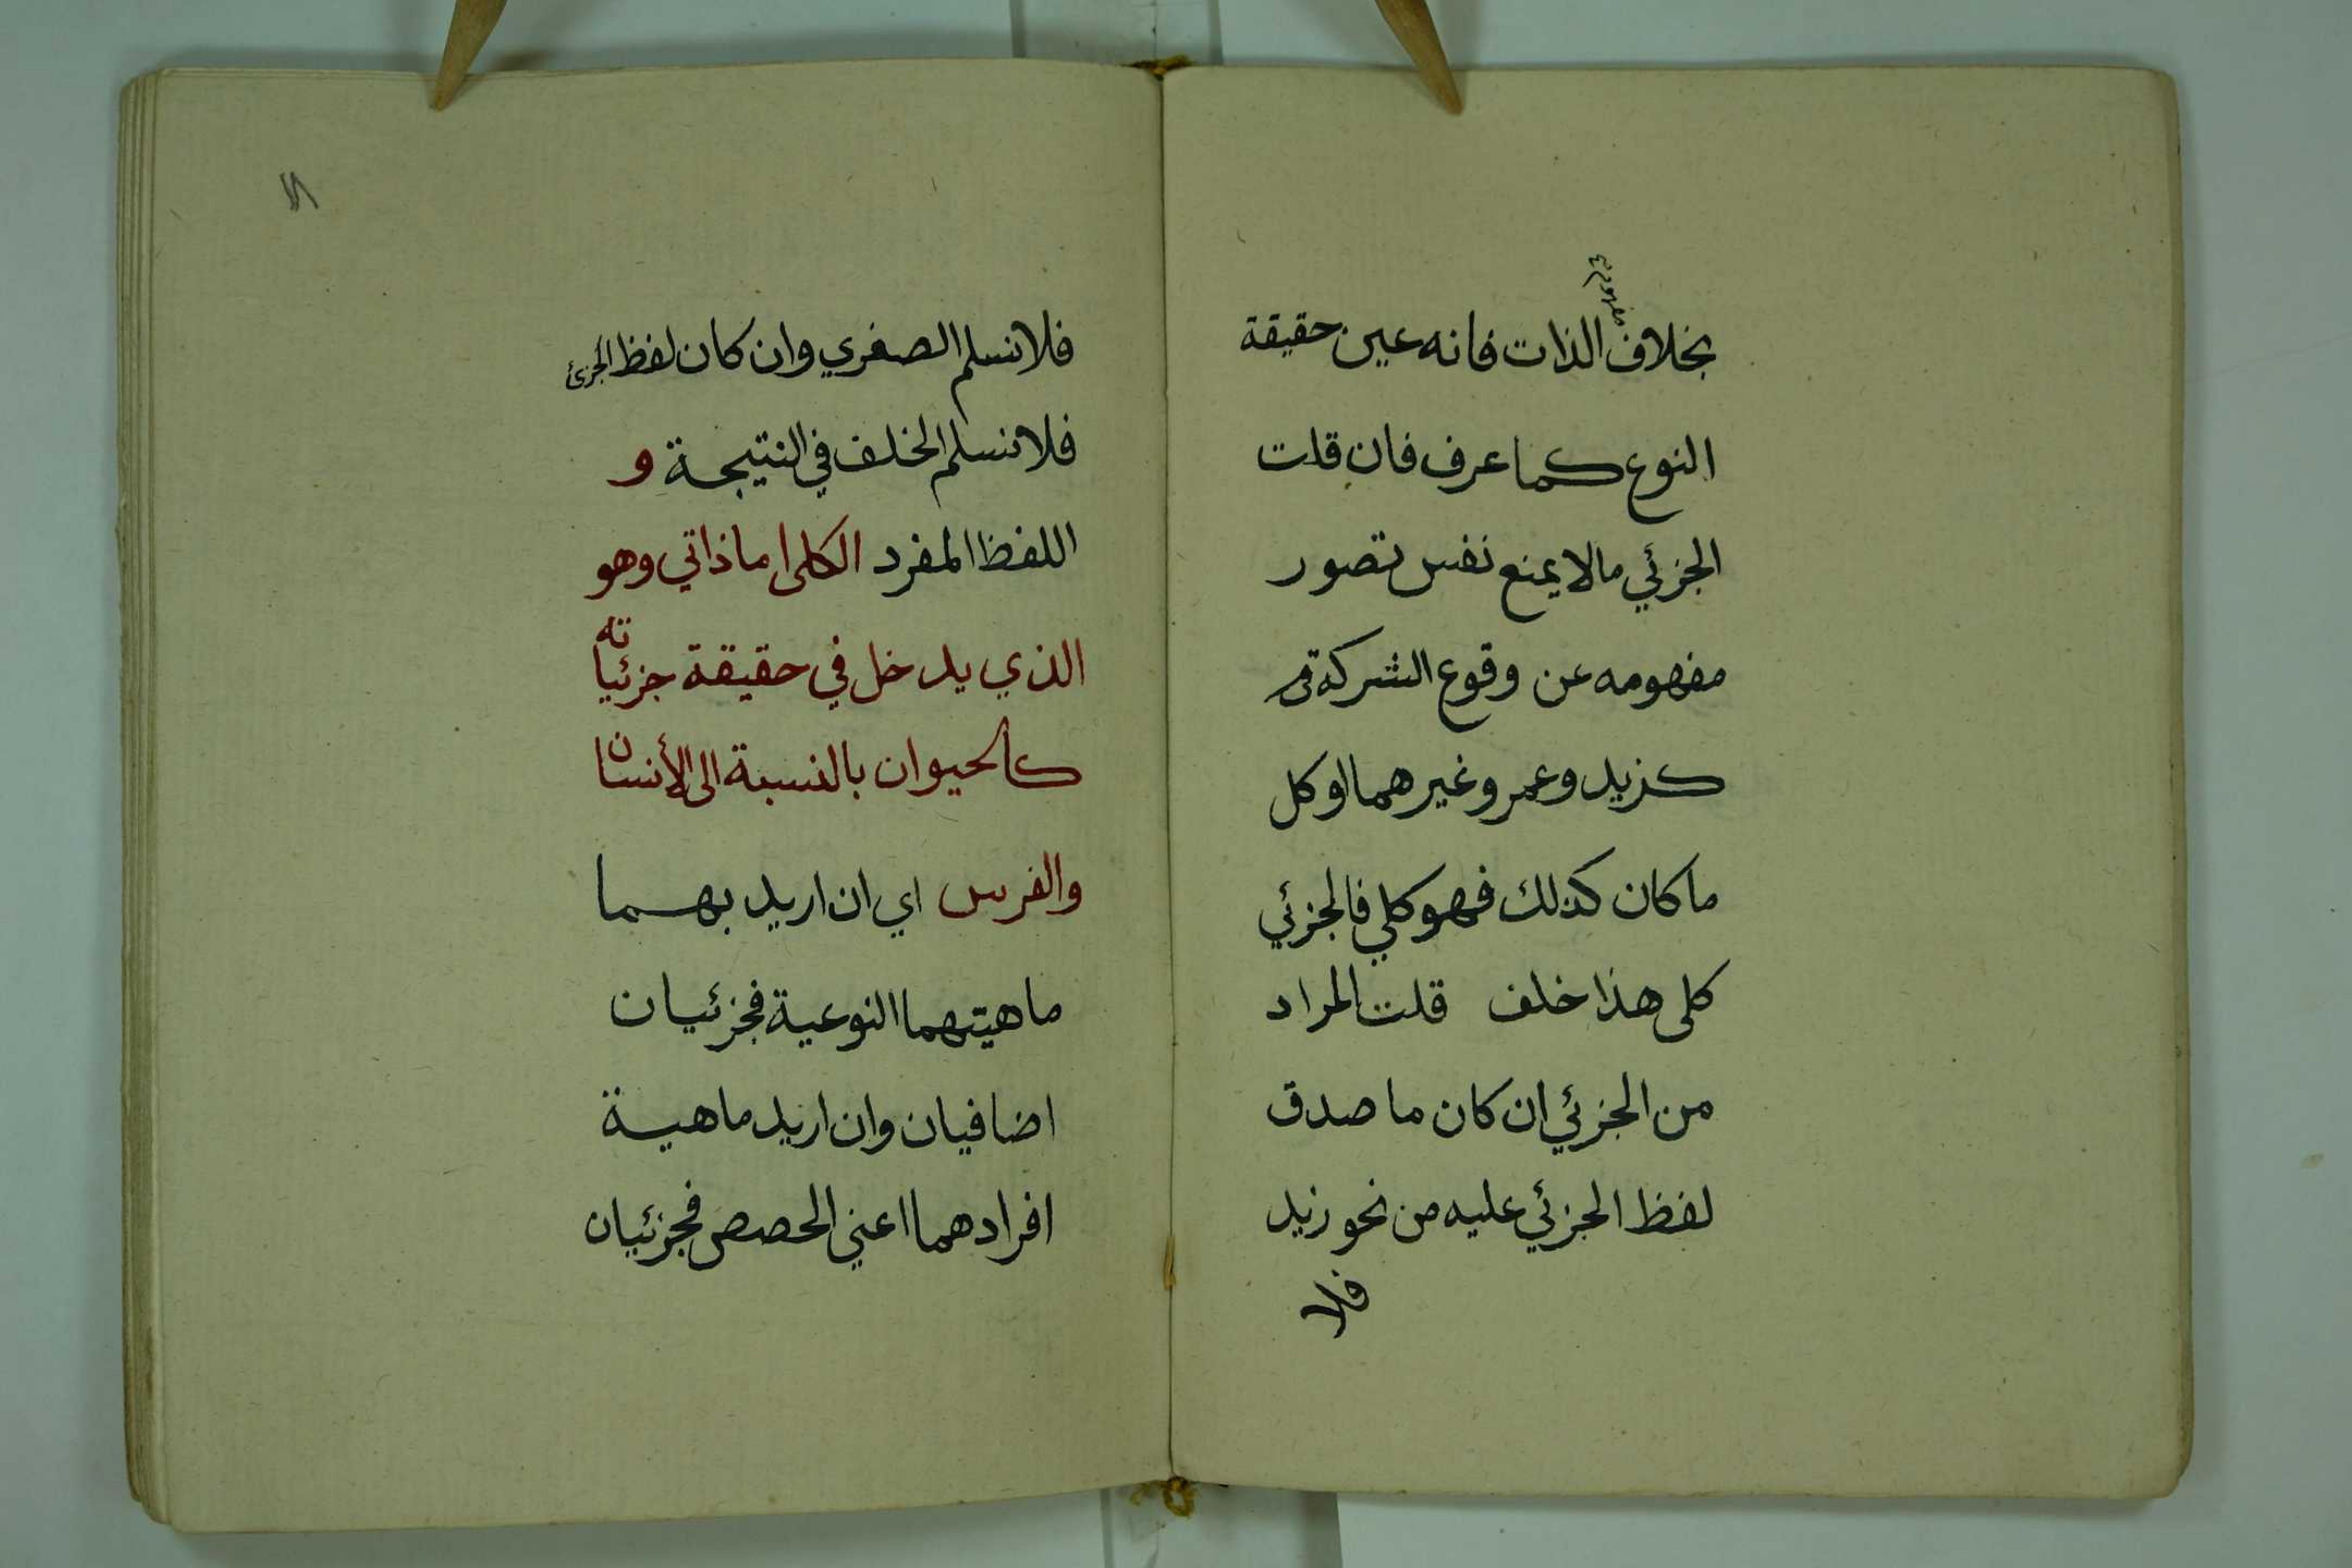 بخلاف الذات فانه عين حقيقة
النوع كما عرف فان قلت
الجزئي مالا يمنع نفس تصور
مفهومه عن وقوع الشركة
كزيد وعمر وغيرهما او كل
ما كان كذلك فهو كلي فالجزئي
كلى هذا خلف قلت المراد
من الجزئي ان كان ما صدق
لفظ الجزئي عليه من نحو زيد
فلا
فلا نسلم الصغري وان كان لفظ الجزئ
فلا نسلم الخلف في النتيجة و
اللفظ المفرد الكلى اما ذاتي وهو
الذي يدخل في حقيقة جزئياته
كالحيوان بالنسبة الى الأنسان
والفرس اي ان اريد بهما
ماهيتهما النوعية فجزئيان
اضافيان وان اريد ماهية
افرادهما اعني الحصص فجزئيان